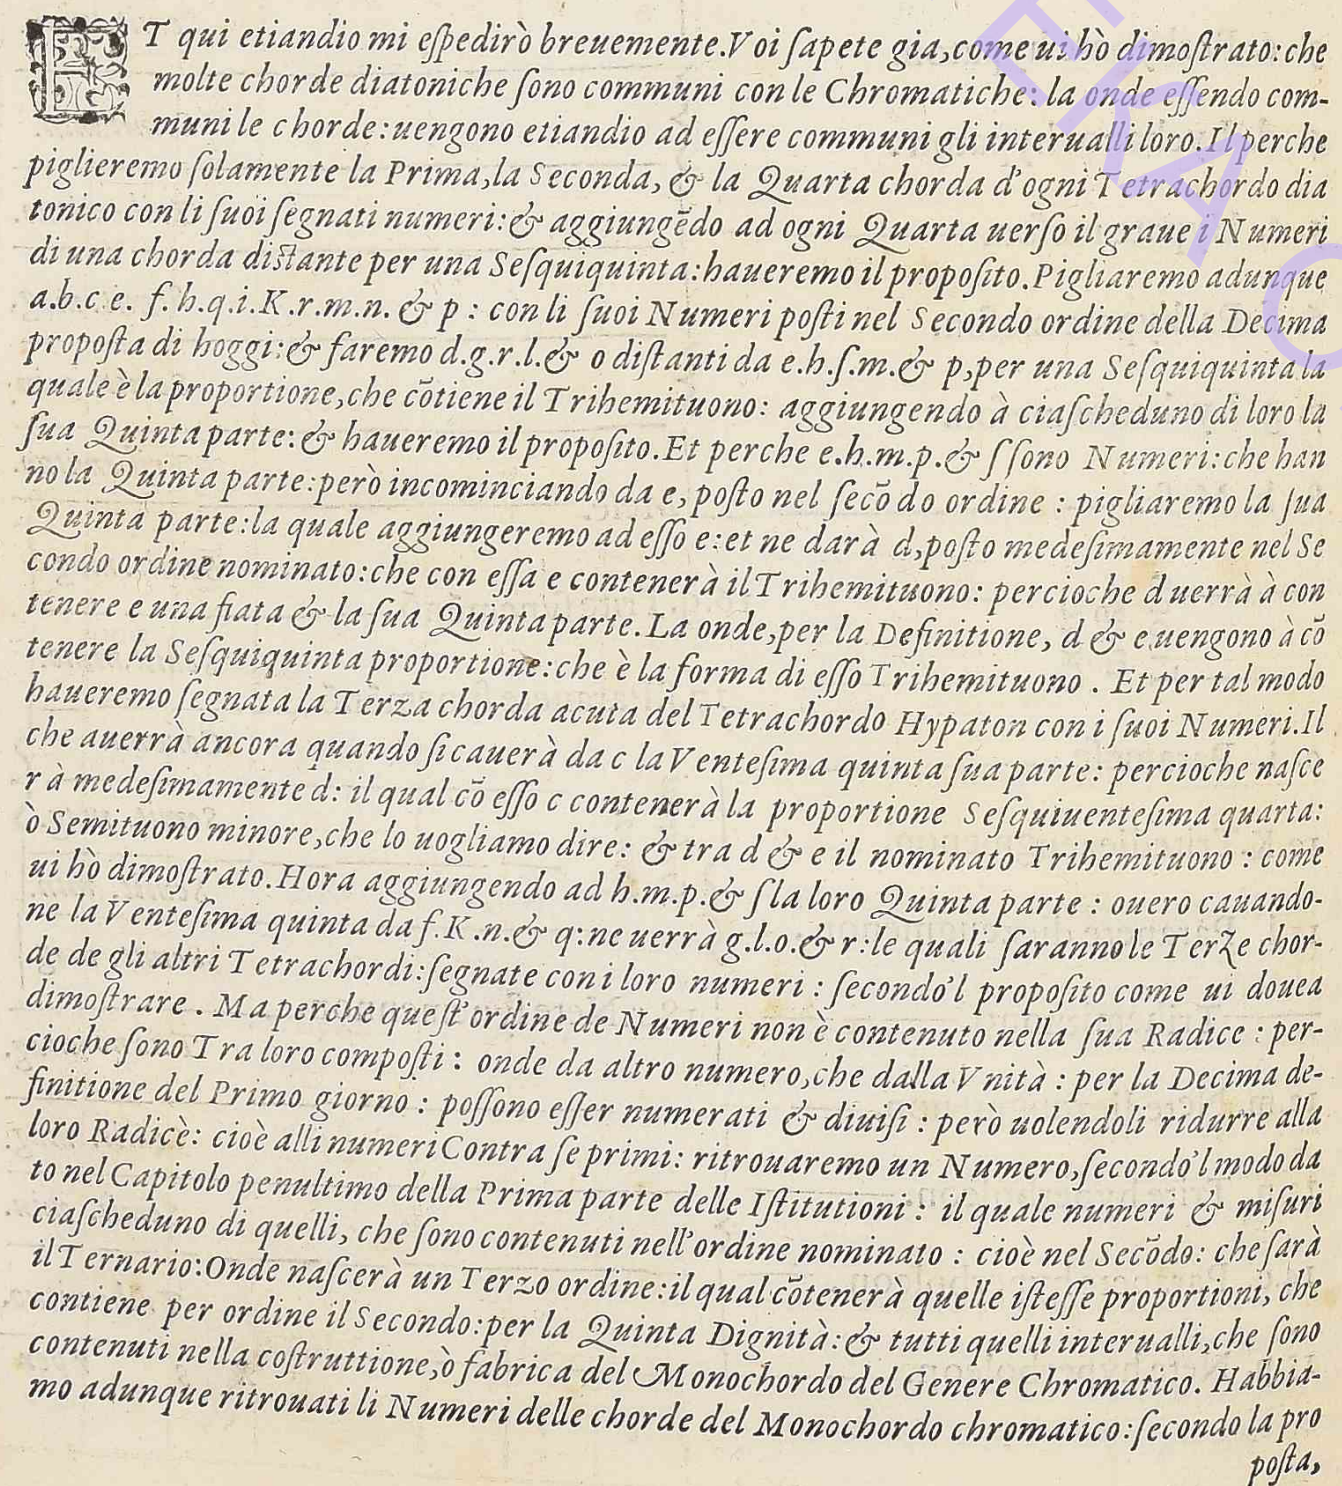 ET qui etiandio mi eſpedirò breuemente.Voi ſapete gia,come ui hò dimoſtrato:che
molte chorde diatoniche ſono communi con le Chromatiche: la onde eſſendo com-
muni le chorde:uengono etiandio ad eſſere communi gli interualli loro.Il perche
piglieremo ſolamente la Prima,la Seconda, & la Quarta chorda d'ogni Tetrachordo dia
tonico con li ſuoi ſegnati numeri:& aggiungēdo ad ogni Quarta uerſo il graue i Numeri
di una chorda diſtante per una Seſquiquinta:haueremo il propoſito.Pigliaremo adunque
a.b.c e. f.h.q.i.K.r.m.n. & p : con li ſuoi Numeri poſti nel Secondo ordine della Decima
propoſta di hoggi:& faremo d.g.r.l.& o diſtanti da e.h.ſ.m.& p,per una Seſquiquinta la
quale è la proportione,che cōtiene il Trihemituono: aggiungendo à ciaſcheduno di loro la
ſua Quinta parte:& haueremo il propoſito.Et perche e.h.m.p.& ſ ſono Numeri:che han
no la Quinta parte:però incominciando da e, poſto nel ſecōdo ordine : pigliaremo la ſua
Quinta parte:la quale aggiungeremo ad eſſo e:et ne darà d,poſto medeſimamente nel Se
condo ordine nominato:che con eſſa e contenerà il Trihemituono: percioche d uerrà à con
tenere e una fiata & la ſua Quinta parte.La onde,per la Definitione, d & e uengono à cō
tenere la Seſquiquinta proportione:che è la forma di eſſo Trihemituono . Et per tal modo
haueremo ſegnata la Terza chorda acuta del Tetrachordo Hypaton con i ſuoi Numeri.Il
che auerrà ancora quando ſi cauerà da c la Venteſima quinta ſua parte: percioche naſce
rà medeſimamente d: il qual cō eſſo c contenerà la proportione Seſquiuenteſima quarta:
ò Semituono minore,che lo uogliamo dire: & tra d & e il nominato Trihemituono : come
ui hò dimoſtrato.Hora aggiungendo ad h.m.p.& ſ la loro Quinta parte : ouero cauando-
ne la Venteſima quinta da f.K.n.& q:ne uerrà g.l.o.& r:le quali ſaranno le Terze chor-
de de gli altri Tetrachordi:ſegnate con i loro numeri : ſecondo'l propoſito come ui douea
dimoſtrare . Ma perche queſt'ordine de Numeri non è contenuto nella ſua Radice : per-
cioche ſono Tra loro compoſti : onde da altro numero,che dalla Vnità : per la Decima de-
finitione del Primo giorno : poſſono eſſer numerati & diuiſi : però uolendoli ridurre alla
loro Radicè: cioè alli numeri Contra ſe primi: ritrouaremo un Numero,ſecondo'l modo da
to nel Capitolo penultimo della Prima parte delle Iſtitutioni : il quale numeri & miſuri
ciaſcheduno di quelli, che ſono contenuti nell'ordine nominato : cioè nel Secōdo: che ſarà
il Ternario:Onde naſcerà un Terzo ordine:il qual cōtenerà quelle iſteſſe proportioni, che
contiene per ordine il Secondo:per la Quinta Dignità:& tutti quelli interualli,che ſono
contenuti nella coſtruttione,ò fabrica del Monochordo del Genere Chromatico. Habbia-
mo adunque ritrouati li Numeri delle chorde del Monochordo chromatico:ſecondo la pro
poſta,